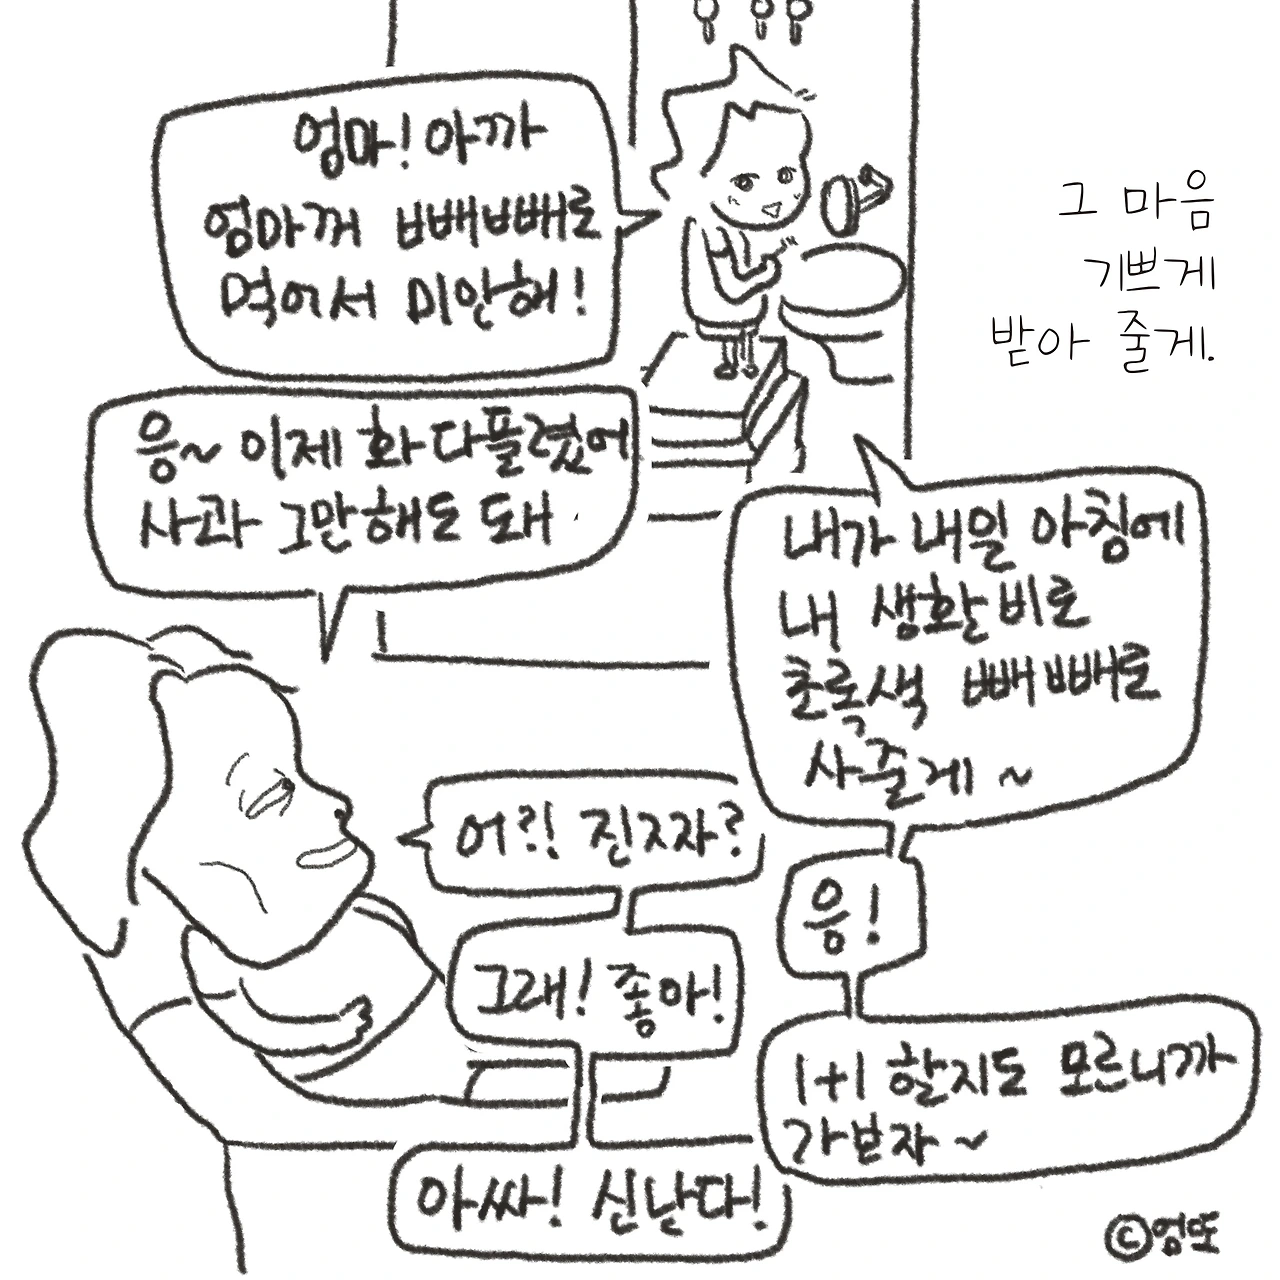 엄마! 아까
엄마꺼 빼빼로
먹어서 미안해!
그 마음
기쁘게
받아 줄게.
응~ 이제 화 다플렸어
사과 그만해도 돼
내가 내일 아침에
내 생활비로
초록색 빼빼로
사줄게 ~
어?! 진짜?
응!
그래! 좋아!
1+1 할지도 모르니까
가보자 ~
아싸! 신난다!
©엄또